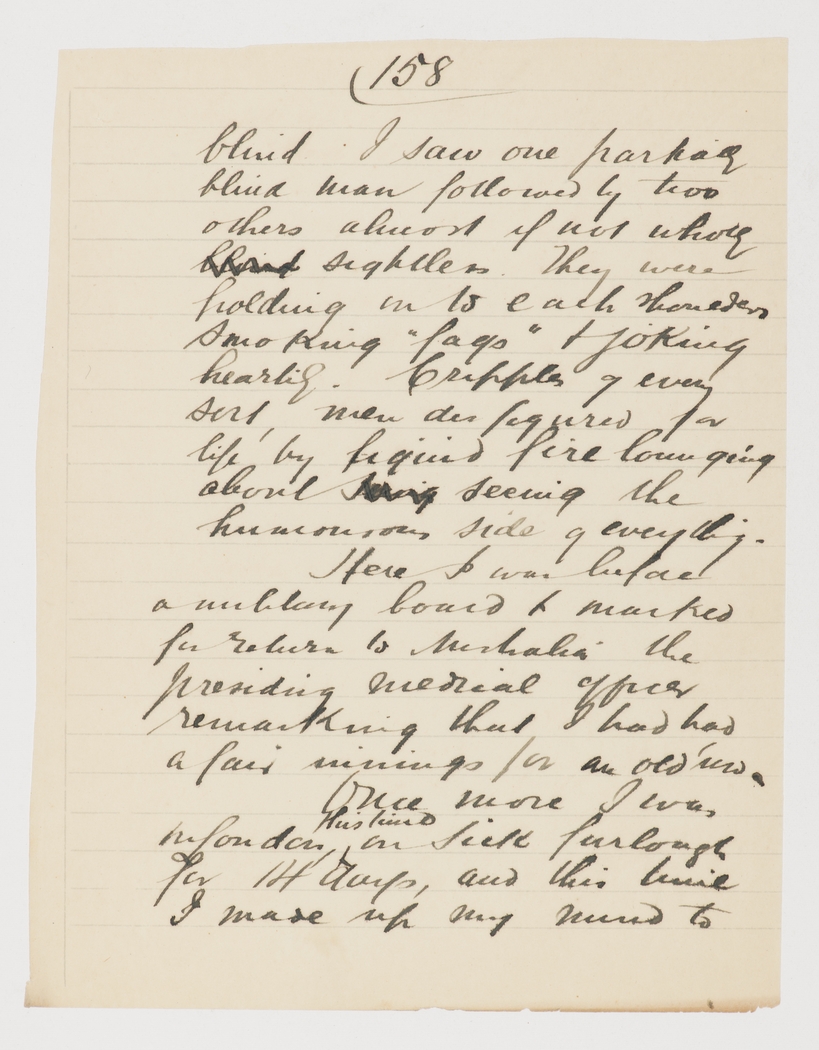 (158
blind. I saw one partially
blind man followed by two
others almost if not wholly
sightless. They were
holding on to each shoulders
smoking "fags" & joking
heartily. Cripples of every
sort, men disfigured for
life, by liquid fire lounging
about seeing the
humourous side of everything.
Here I was before
a military board & marked
for return to Australia the
presiding medical officer
remarking that I had had
a fair innings for an old 'un.
Once more I was
this time
in London, on sick furlough
for 14 days, and this time
I made up my mind to